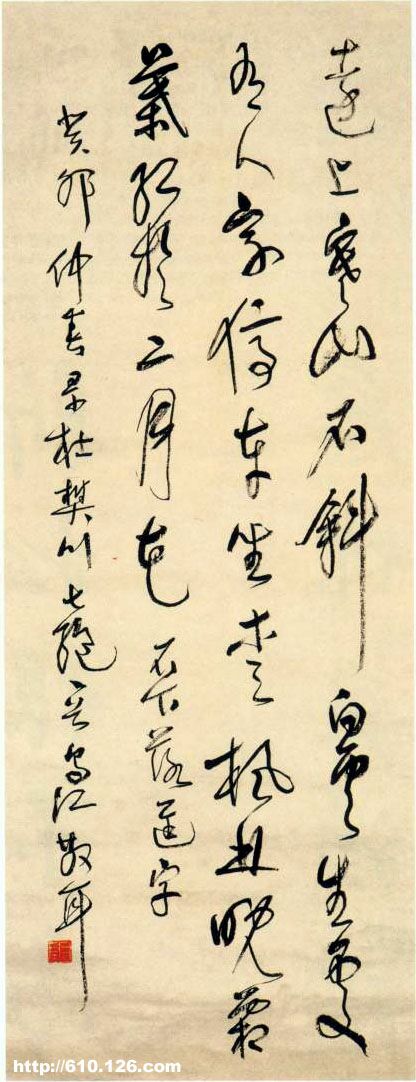 遠上寒山石斜白雲生處
有人家停車坐愛楓林晚霜
葉紅於二月花 石下落逕字
癸卯仲春录杜樊川七絕烏江散耳
http://610.126.com/